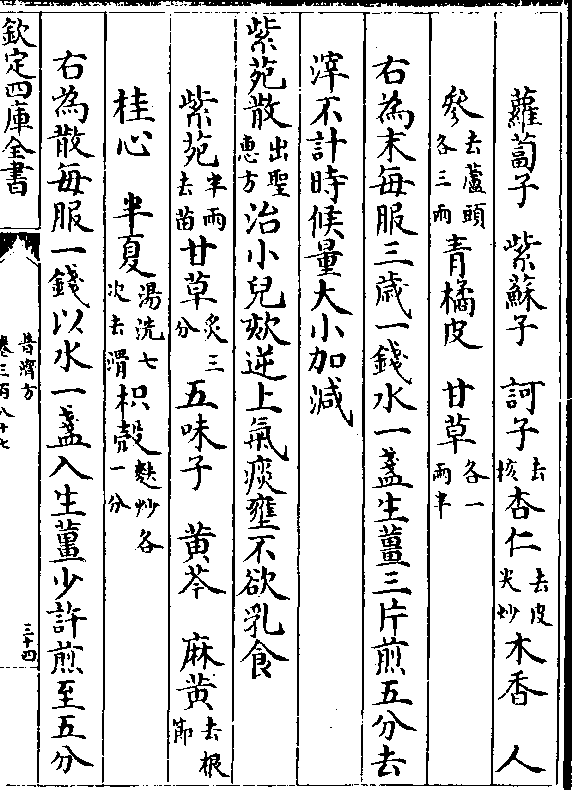 蘿蔔子 紫蘇子 訶子去核杏仁去皮尖炒木香 人
參去蘆頭各三兩青橘皮 甘草各一兩半
右為末每服三歲一錢水一盞生薑三片煎五分去
滓不計時候量大小加減
紫苑散出聖惠方治小兒欬逆上氣痰壅不欲乳食
紫苑半兩去苗甘草炙三分五味子 黄芩 麻黄去根節
桂心 半夏湯洗七次去滑枳殼麩炒各一分
右為散每服一錢以水一盞入生薑少許煎至五分
欽定四庫全書
普濟方
卷三百八十七
三十四